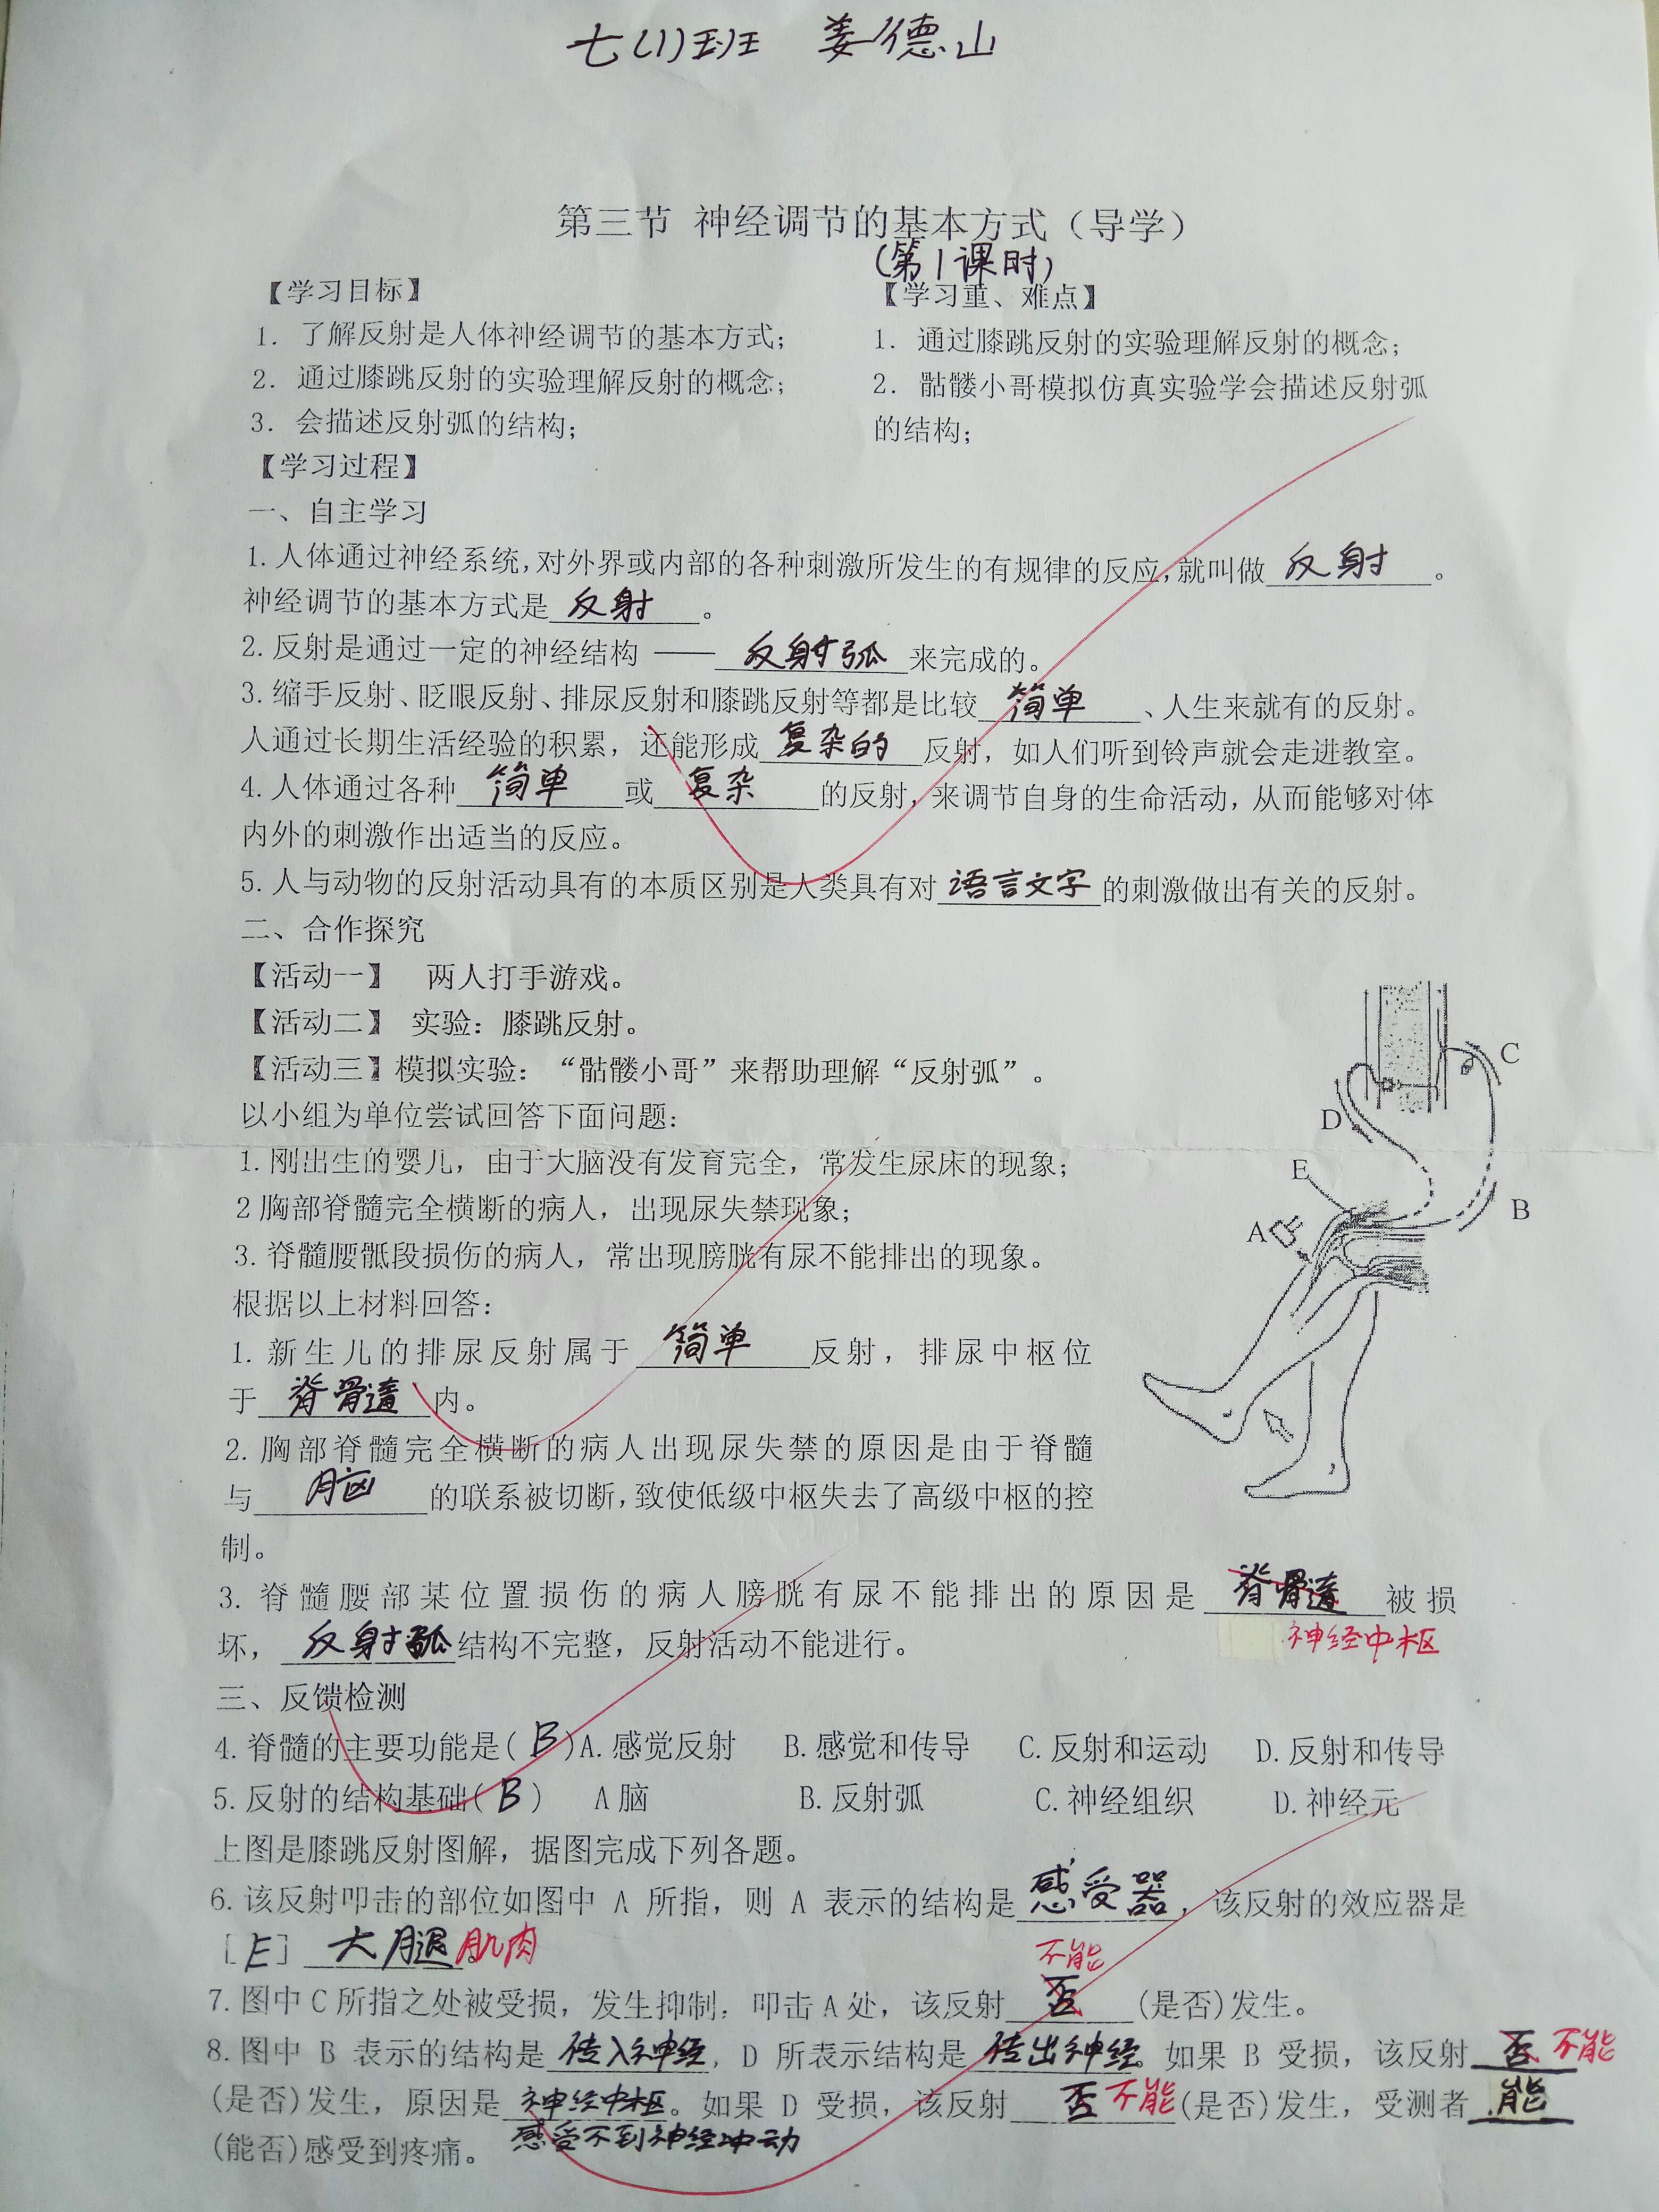 七(1)班 姜德山
第三节 神经调节的基本方式（导学）
(第1课时)
【学习目标】
1. 了解反射是人体神经调节的基本方式；
2. 通过膝跳反射的实验理解反射的概念；
3. 会描述反射弧的结构；
【学习重、难点】
1. 通过膝跳反射的实验理解反射的概念；
2. 骷髅小哥模拟仿真实验学会描述反射弧
的结构；
【学习过程】
一、自主学习
1.人体通过神经系统,对外界或内部的各种刺激所发生的有规律的反应,就叫做 反射 。
神经调节的基本方式是 反射 。
2.反射是通过一定的神经结构 —— 反射弧 来完成的。
3.缩手反射、眨眼反射、排尿反射和膝跳反射等都是比较 简单 、人生来就有的反射。
人通过长期生活经验的积累，还能形成 复杂的 反射，如人们听到铃声就会走进教室。
4.人体通过各种 简单 或 复杂 的反射，来调节自身的生命活动，从而能够对体
内外的刺激作出适当的反应。
5.人与动物的反射活动具有的本质区别是人类具有对 语言文字 的刺激做出有关的反射。
二、合作探究
【活动一】 两人打手游戏。
【活动二】 实验：膝跳反射。
【活动三】模拟实验：“骷髅小哥”来帮助理解“反射弧”。
以小组为单位尝试回答下面问题：
1.刚出生的婴儿，由于大脑没有发育完全，常发生尿床的现象；
2胸部脊髓完全横断的病人，出现尿失禁现象；
3.脊髓腰骶段损伤的病人，常出现膀胱有尿不能排出的现象。
根据以上材料回答：
1.新生儿的排尿反射属于 简单 反射，排尿中枢位
于 脊髓 内。
2.胸部脊髓完全横断的病人出现尿失禁的原因是由于脊髓
与 脑 的联系被切断,致使低级中枢失去了高级中枢的控
制。
C
D
E
B
A
3.脊髓腰部某位置损伤的病人膀胱有尿不能排出的原因是 脊髓 被损
神经中枢
坏， 反射弧 结构不完整，反射活动不能进行。
三、反馈检测
4.脊髓的主要功能是( B )A.感觉反射 B.感觉和传导 C.反射和运动 D.反射和传导
5.反射的结构基础( B ) A脑 B.反射弧 C.神经组织 D.神经元
上图是膝跳反射图解，据图完成下列各题。
6.该反射叩击的部位如图中 A 所指，则 A 表示的结构是 感受器 ，该反射的效应器是
[E] 大腿肌肉
不能
7.图中C所指之处被受损，发生抑制，叩击A处，该反射 否 (是否)发生。
8.图中 B 表示的结构是 传入神经 ，D 所表示结构是 传出神经 。如果 B 受损，该反射 否 不能
(是否)发生，原因是 神经中枢 。如果 D 受损，该反射 否 不能 (是否)发生，受测者 能
感受不到神经冲动
(能否)感受到疼痛。